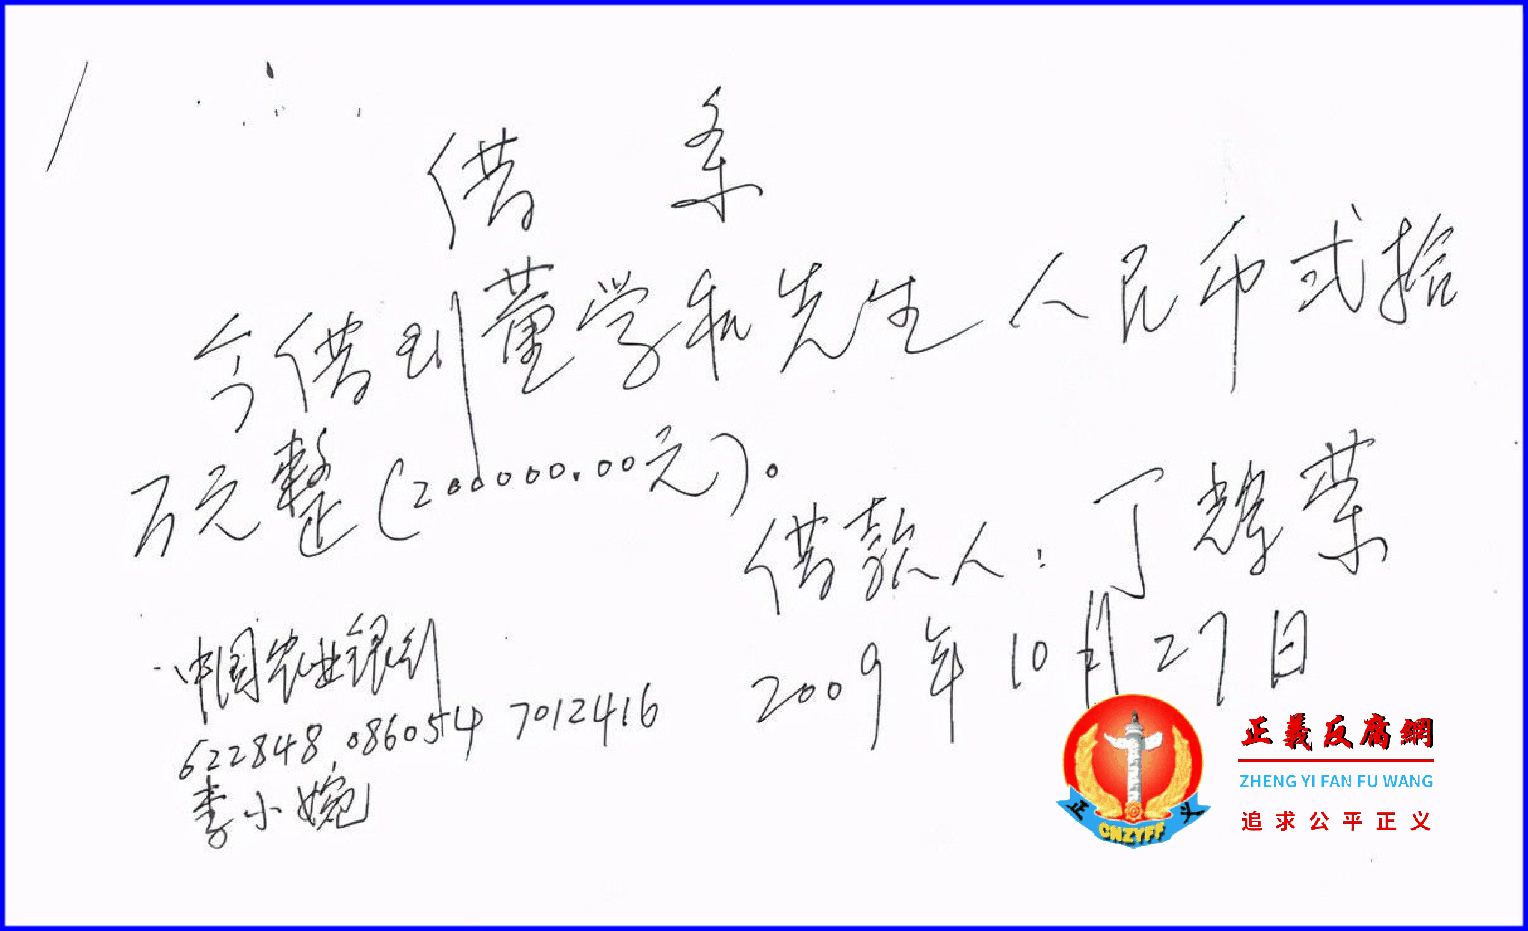 借 条
今借到董学和先生人民币弍拾
万元整(200000.00元)。
借款人：丁辉荣
2009年10月27日
中国农业银行
622848 0860514 7012416
李小婉
正義反腐網
ZHENG YI FAN FU WANG
追求公平正义
正 义
CNZYFF